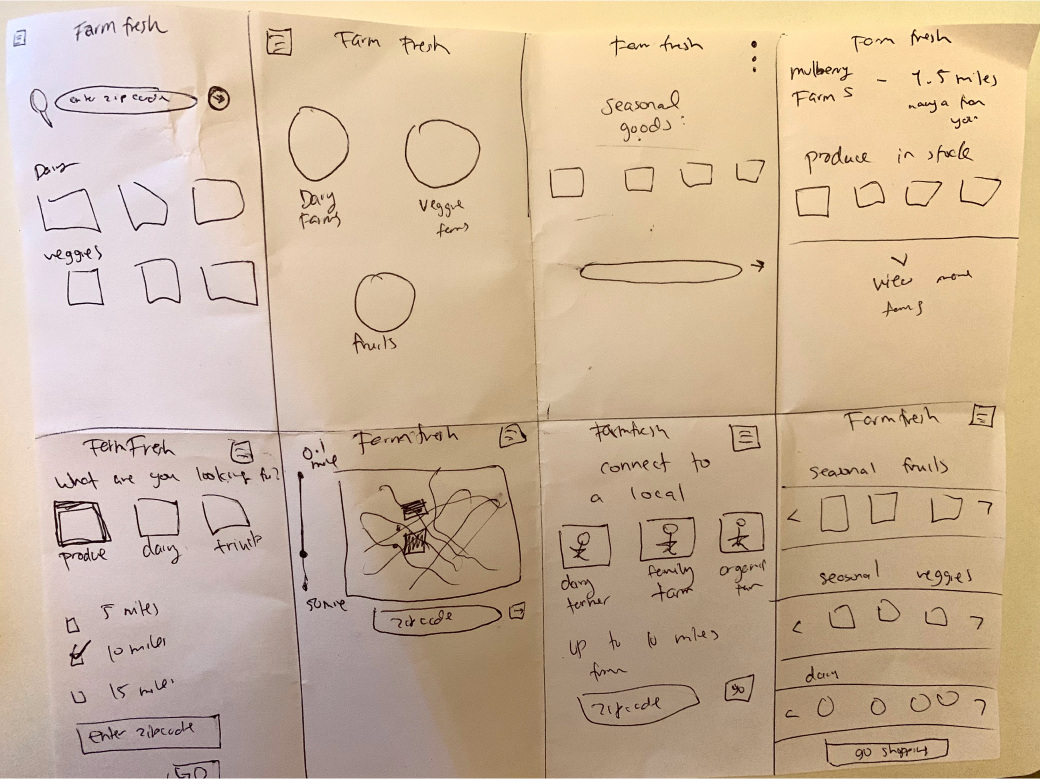 Farm fresh
enter zip code
Dairy
veggies
Farm Fresh
Dairy
Farms
Veggie
farms
fruits
Farm fresh
seasonal
goods:
Farm fresh
mulberry
Farms
- 7.5 miles
away from
you
produce in stock
view more
farms
Farm Fresh
What are you looking for?
produce
dairy
fruits
5 miles
10 miles
15 miles
Enter zipcode
GO
Farm fresh
0.1
mile
50 mile
zipcode
Farmfresh
connect to
a local
dairy
farmer
family
farm
organic
farm
up to 10 miles
from
zipcode
go
Farm fresh
seasonal fruits
seasonal veggies
dairy
go shopping